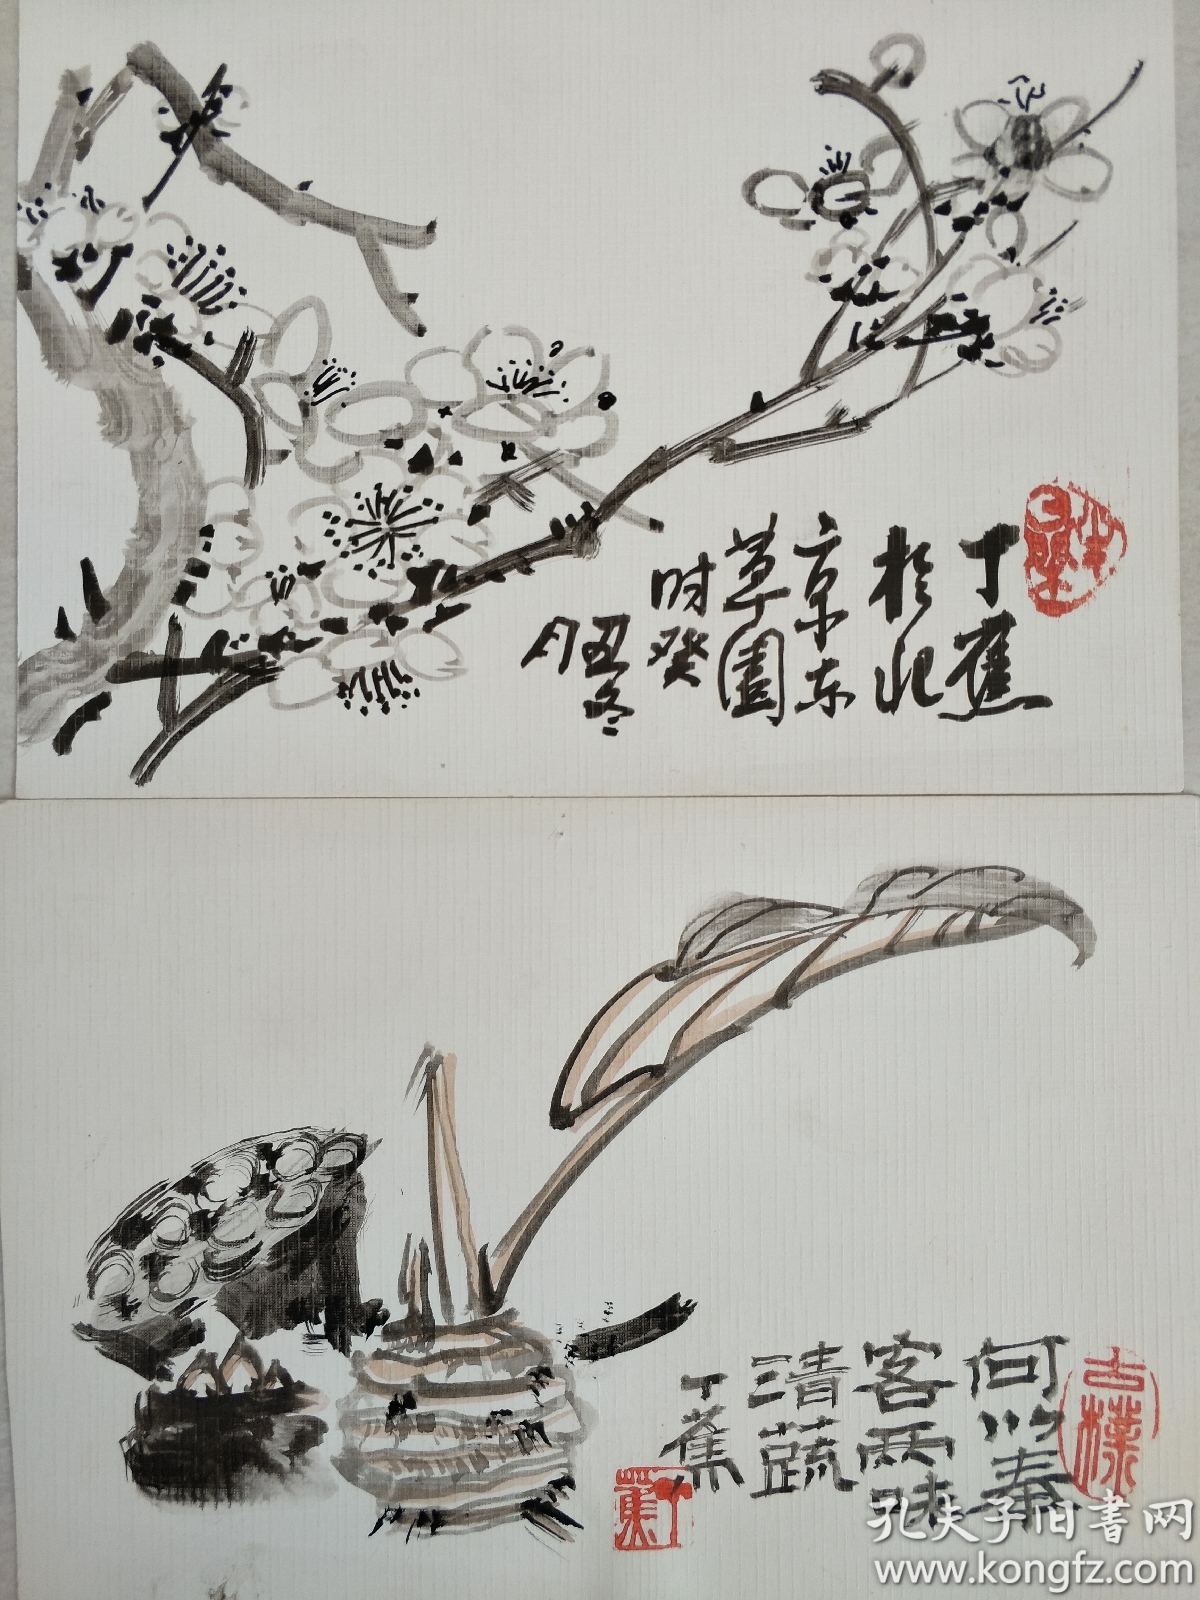 丁蕉
於北
京东
草园
时癸
丑冬
月
何以奉
客两味
清蔬
丁蕉
古樸
丁蕉
孔夫子旧书网
www.kongfz.com